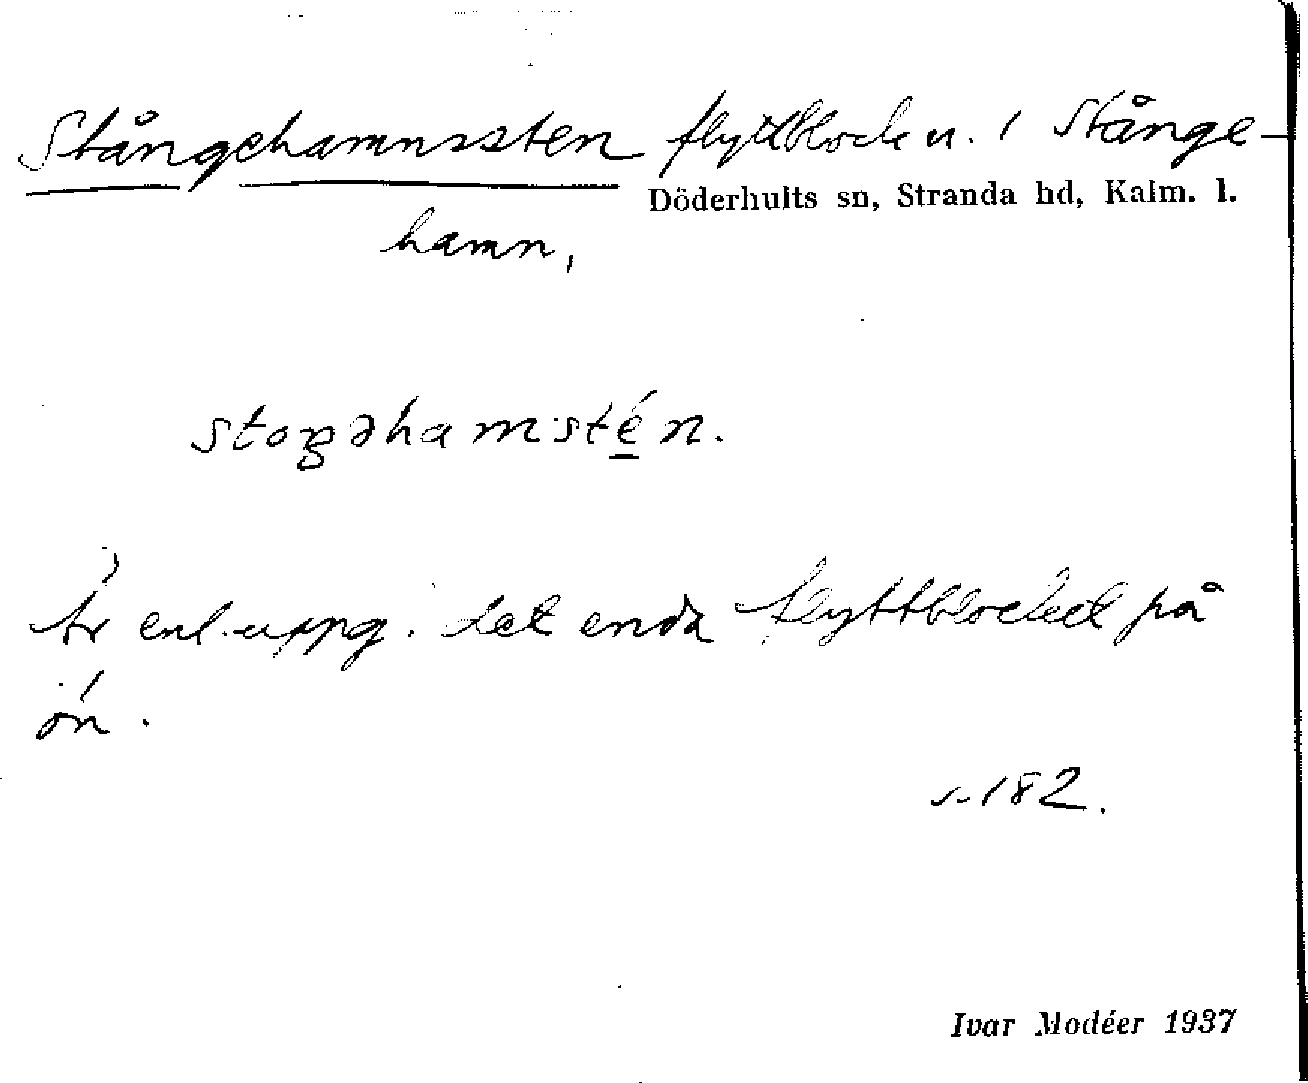 Stångehamnssten flyttblock n. i Stånge-
Döderhults sn, Stranda hd, Kalm. l.
hamn,
stoŋəhamsté̲n.
Är enl. uppg. det enda flyttblocket på
ön.
s. 182.
Ivar Modéer 1937